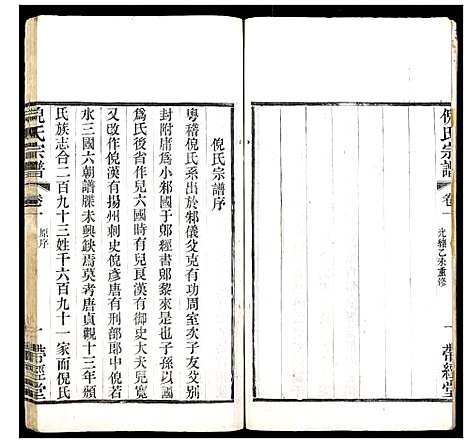 倪氏宗譜
卷一
光緒乙未重修
一
帶經堂
倪氏宗譜序
粵稽倪氏系出於邾儀父克有功周室次子友父別
封附庸爲小邾國于郳經書郳黎來是也子孫以國
爲氏後省作兒六國時有兒良漢有御史大夫兒寬
又改作倪漢有揚州刺史倪彥唐有刑部郎中倪若
水三國六朝譜牒未興缺焉莫考唐貞觀十三年頒
氏族志合二百九十三姓千六百九十一家而倪氏
倪氏宗譜
卷一
原序
一
帶經堂